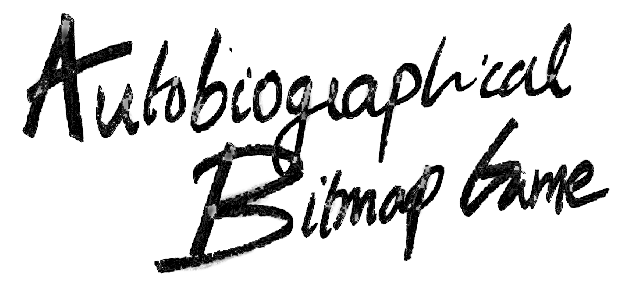 Autobiographical
Bitmap Game